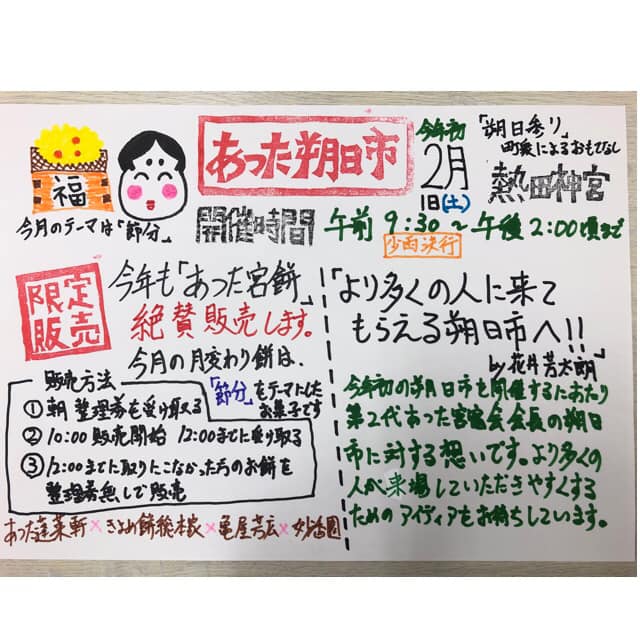 福
今月のテーマは「節分」
あった朔日市
開催時間
今年初
2月
1日(土)
「朔日参り」
町衆によるおもてなし
熱田神宮
午前 9:30〜午後2:00頃まで
少雨決行
限定
販売
今年も「あった宮餅」
絶賛販売します。
今月の月変わり餅は、
「節分」をテーマにした
お菓子です
販売方法
①朝 整理券を受け取る
②10:00販売開始 12:00までに受け取る
③12:00までに取りにこなかった方のお餅を
整理券無しで販売
あつた蓬莱軒×きよめ餅総本家×亀屋芳広×妙香園
「より多くの人に来て
もらえる朔日市へ!!
by 花井芳太朗
今年初の朔日市を開催するにあたり
第2代あった宮宿会会長の朔日
市に対する想いです。より多くの
人が来場していただきやすくする
ためのアイディアをお待ちしています。